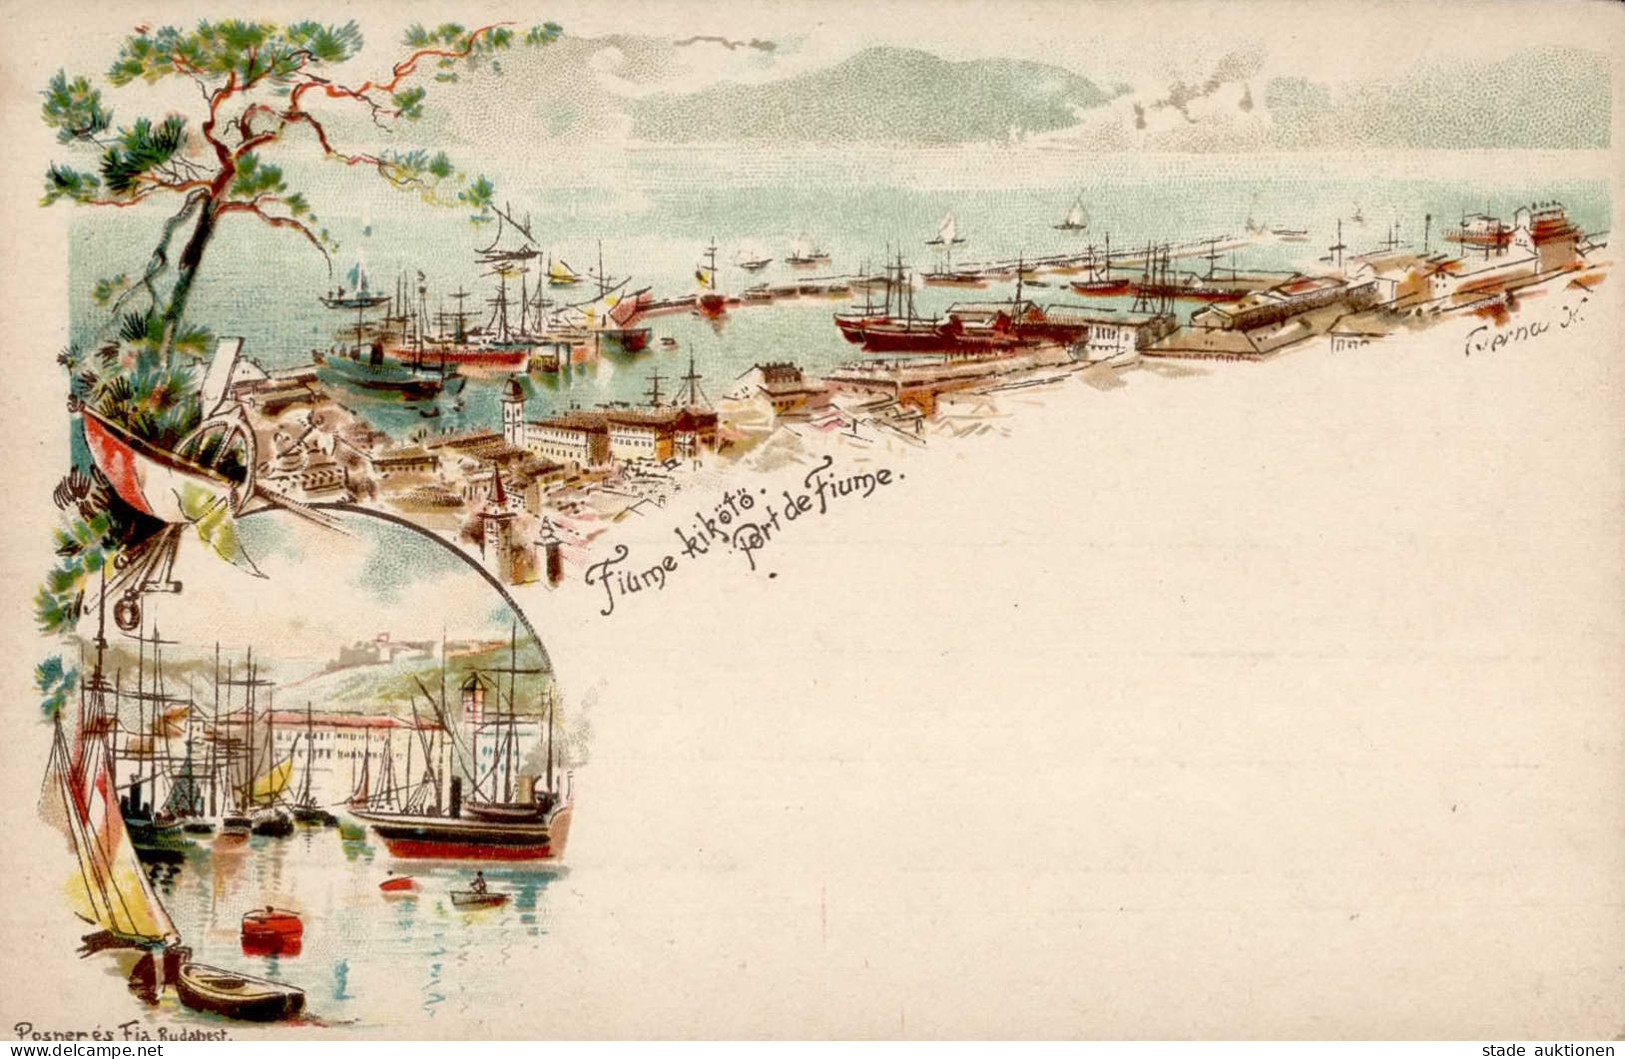 Fiume kikötö.
Port de Fiume.
Posner és Fia, Budapest.
delcampe.net
stade auktionen